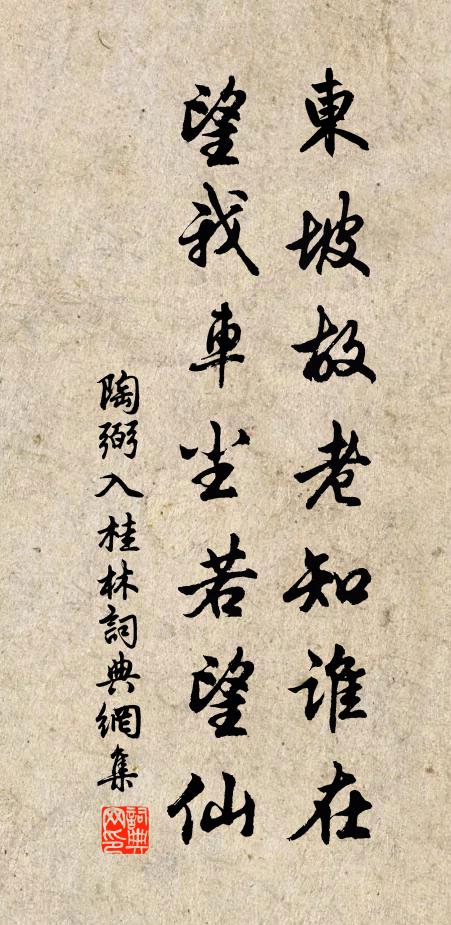 東坡故老知誰在
望我車尘若望仙
陶弼入桂林詞典網集
詞典网印